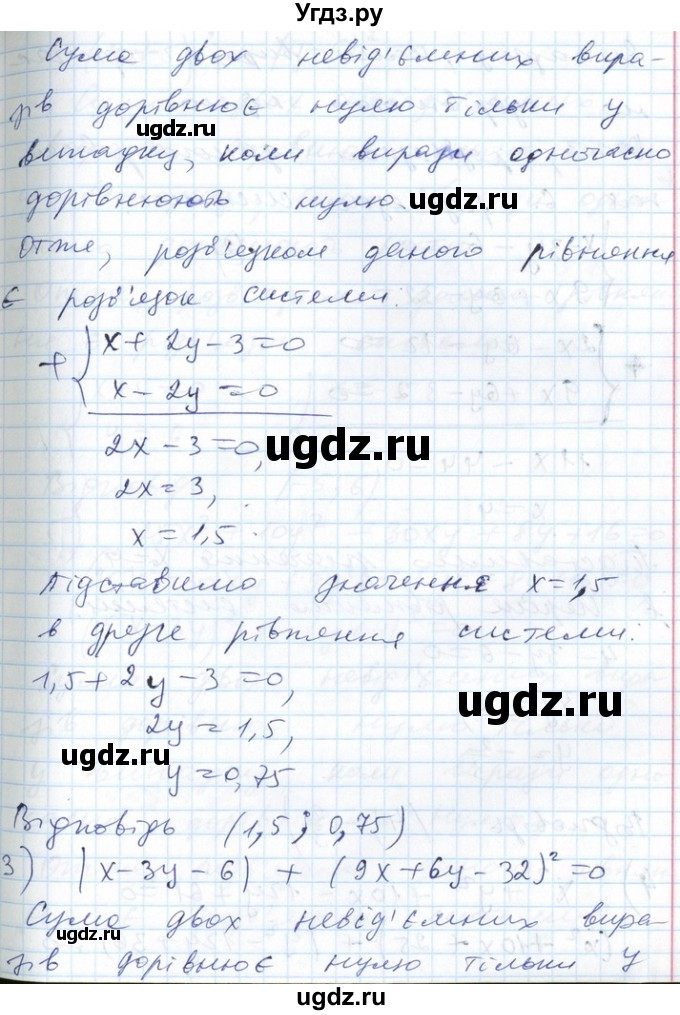 Угдз.ру
Сума двох невід'ємних вира-
зів дорівнює нулю тільки у
ugdz.ru
випадку, коли вирази одночасно
дорівнюють нулю.
ugdz.ru
Отже, розв'язком даного рівняння
є розв'язок системи:
+ { x + 2y - 3 = 0
x - 2y = 0
2x - 3 = 0,
ugdz.ru
2x = 3,
x = 1,5.
Підставимо значення x = 1,5
в друге рівняння системи:
1,5 + 2y - 3 = 0,
ugdz.ru
2y = 1,5,
ugdz.ru
y = 0,75
Відповідь (1,5 ; 0,75)
3) |x - 3y - 6| + (9x + 6y - 32)² = 0
Сума двох невід'ємних вира-
ugdz.ru
зів дорівнює нулю тільки у
ugdz.ru